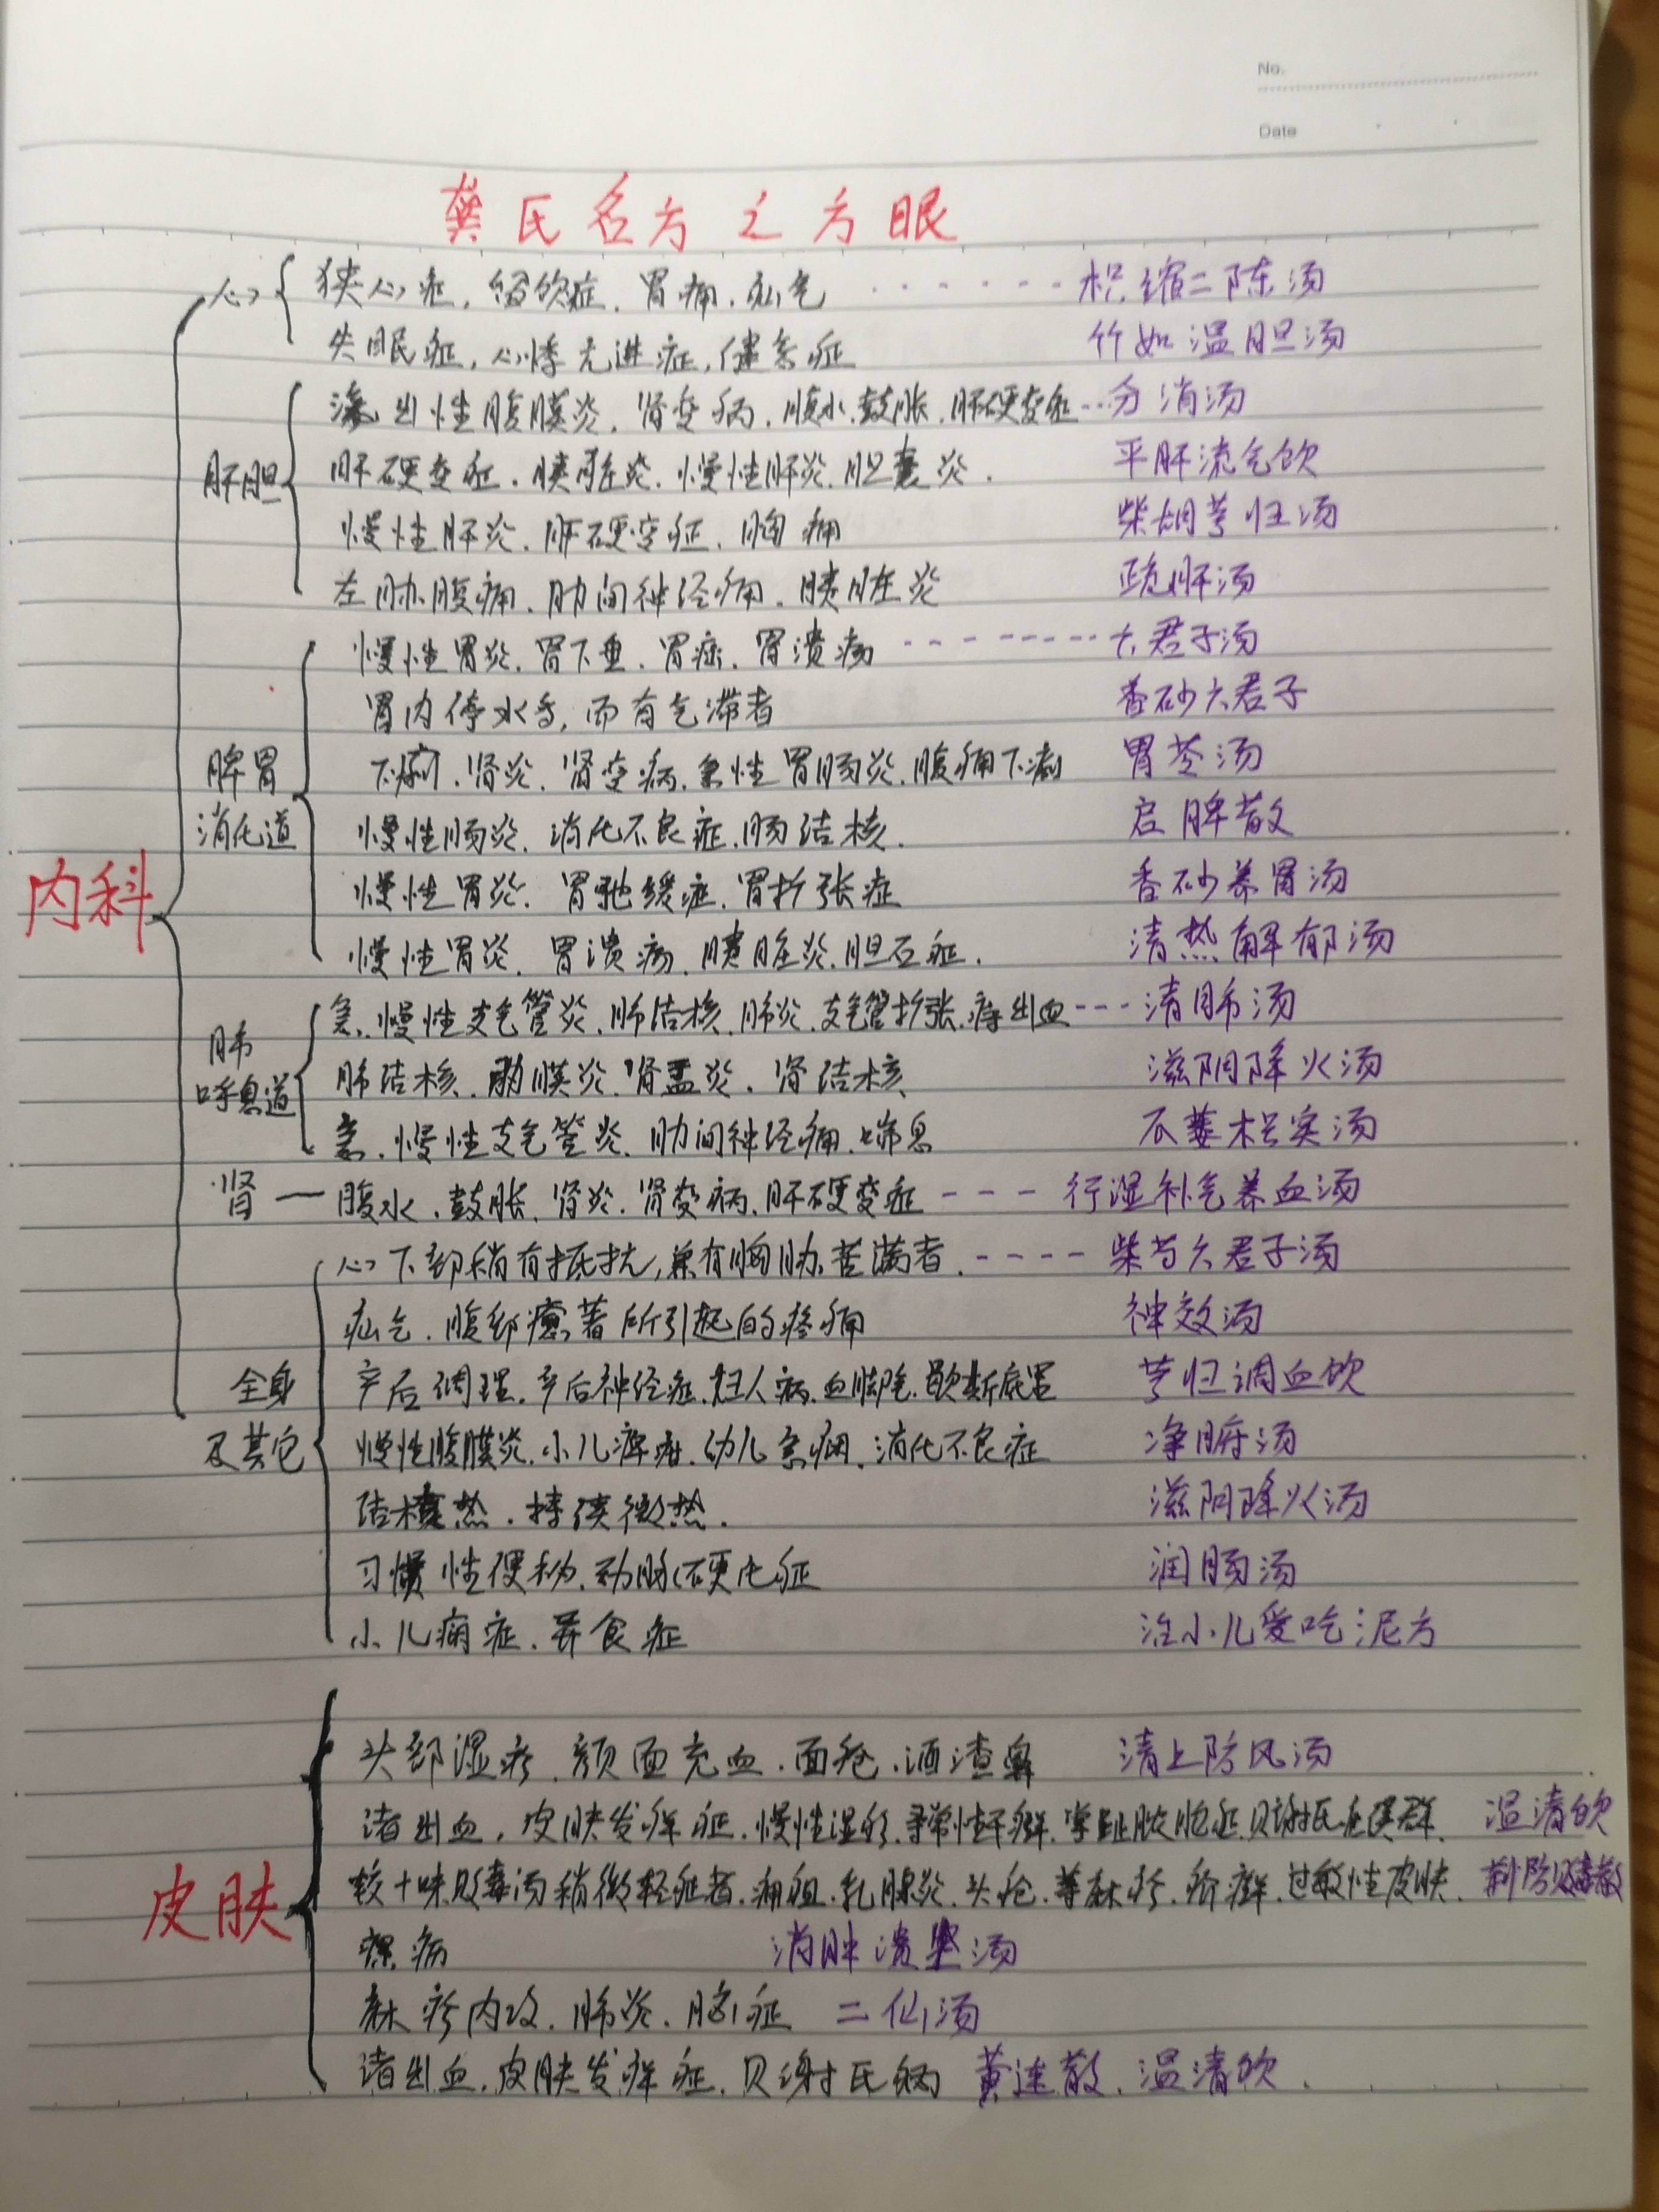 No.
Date
龚氏名方之方眼
心 狭心症，留饮症、胃痛、疝气 …… 枳缩二陈汤
失眠症，心悸亢进症，健忘症 竹如温胆汤
肝胆 渗出性腹膜炎、肾变病、腹水、鼓胀、肝硬变症…分消汤
肝硬变症、胰脏炎、慢性肝炎、胆囊炎. 平肝流气饮
慢性肝炎、肝硬变症、胸痛 柴胡芎归汤
左胁腹痛、肋间神经痛、胰脏炎 疏肝汤
脾胃 消化道 慢性胃炎、胃下垂、胃症、胃溃疡 --------- 六君子汤
胃内停水音，而有气滞者 香砂六君子
下痢、肾炎、肾变病、急性胃肠炎、腹痛下痢 胃苓汤
慢性肠炎、消化不良症、肠结核. 启脾散
慢性胃炎、胃弛缓症、胃扩张症 香砂养胃汤
慢性胃炎、胃溃疡、胰脏炎、胆石症. 清热解郁汤
内科
肺 呼息道 急、慢性支气管炎、肺结核、肺炎、支气管扩张、痔出血 --- 清肺汤
肺结核、肋膜炎、肾盂炎、肾结核 滋阴降火汤
急、慢性支气管炎、肋间神经痛、喘息 瓜蒌枳实汤
肾 — 腹水、鼓胀、肾炎、肾变病、肝硬变症 --- 行湿补气养血汤
心下部稍有抵抗，兼有胸胁苦满者. ---- 柴芍六君子汤
疝气、腹部瘤著所引起的疼痛 神效汤
全身 产后调理、产后神经症、妇人病、血脚气 芎归调血饮
及其它 慢性腹膜炎、小儿痹疳、幼儿急痫、消化不良症 净腑汤
结核热、持续微热. 滋阴降火汤
习惯性便秘、动脉硬化症 润肠汤
小儿病症、异食症 治小儿爱吃泥方
头部湿疹、颜面充血、面疱、酒渣鼻 清上防风汤
诸出血，皮肤发痒症、慢性湿疹、寻常性干癣、掌趾脓疱症、贝谢氏症候群. 温清饮
皮肤 较十味败毒汤稍微轻症者、痈疽、乳腺炎、头疮、荨麻疹、疥癣、过敏性皮肤、荆防败毒散
瘰疬 消肿溃坚汤
麻疹内攻、肺炎、脑症 二仙汤
诸出血、皮肤发痒症、贝谢氏病 黄连散、温清饮.